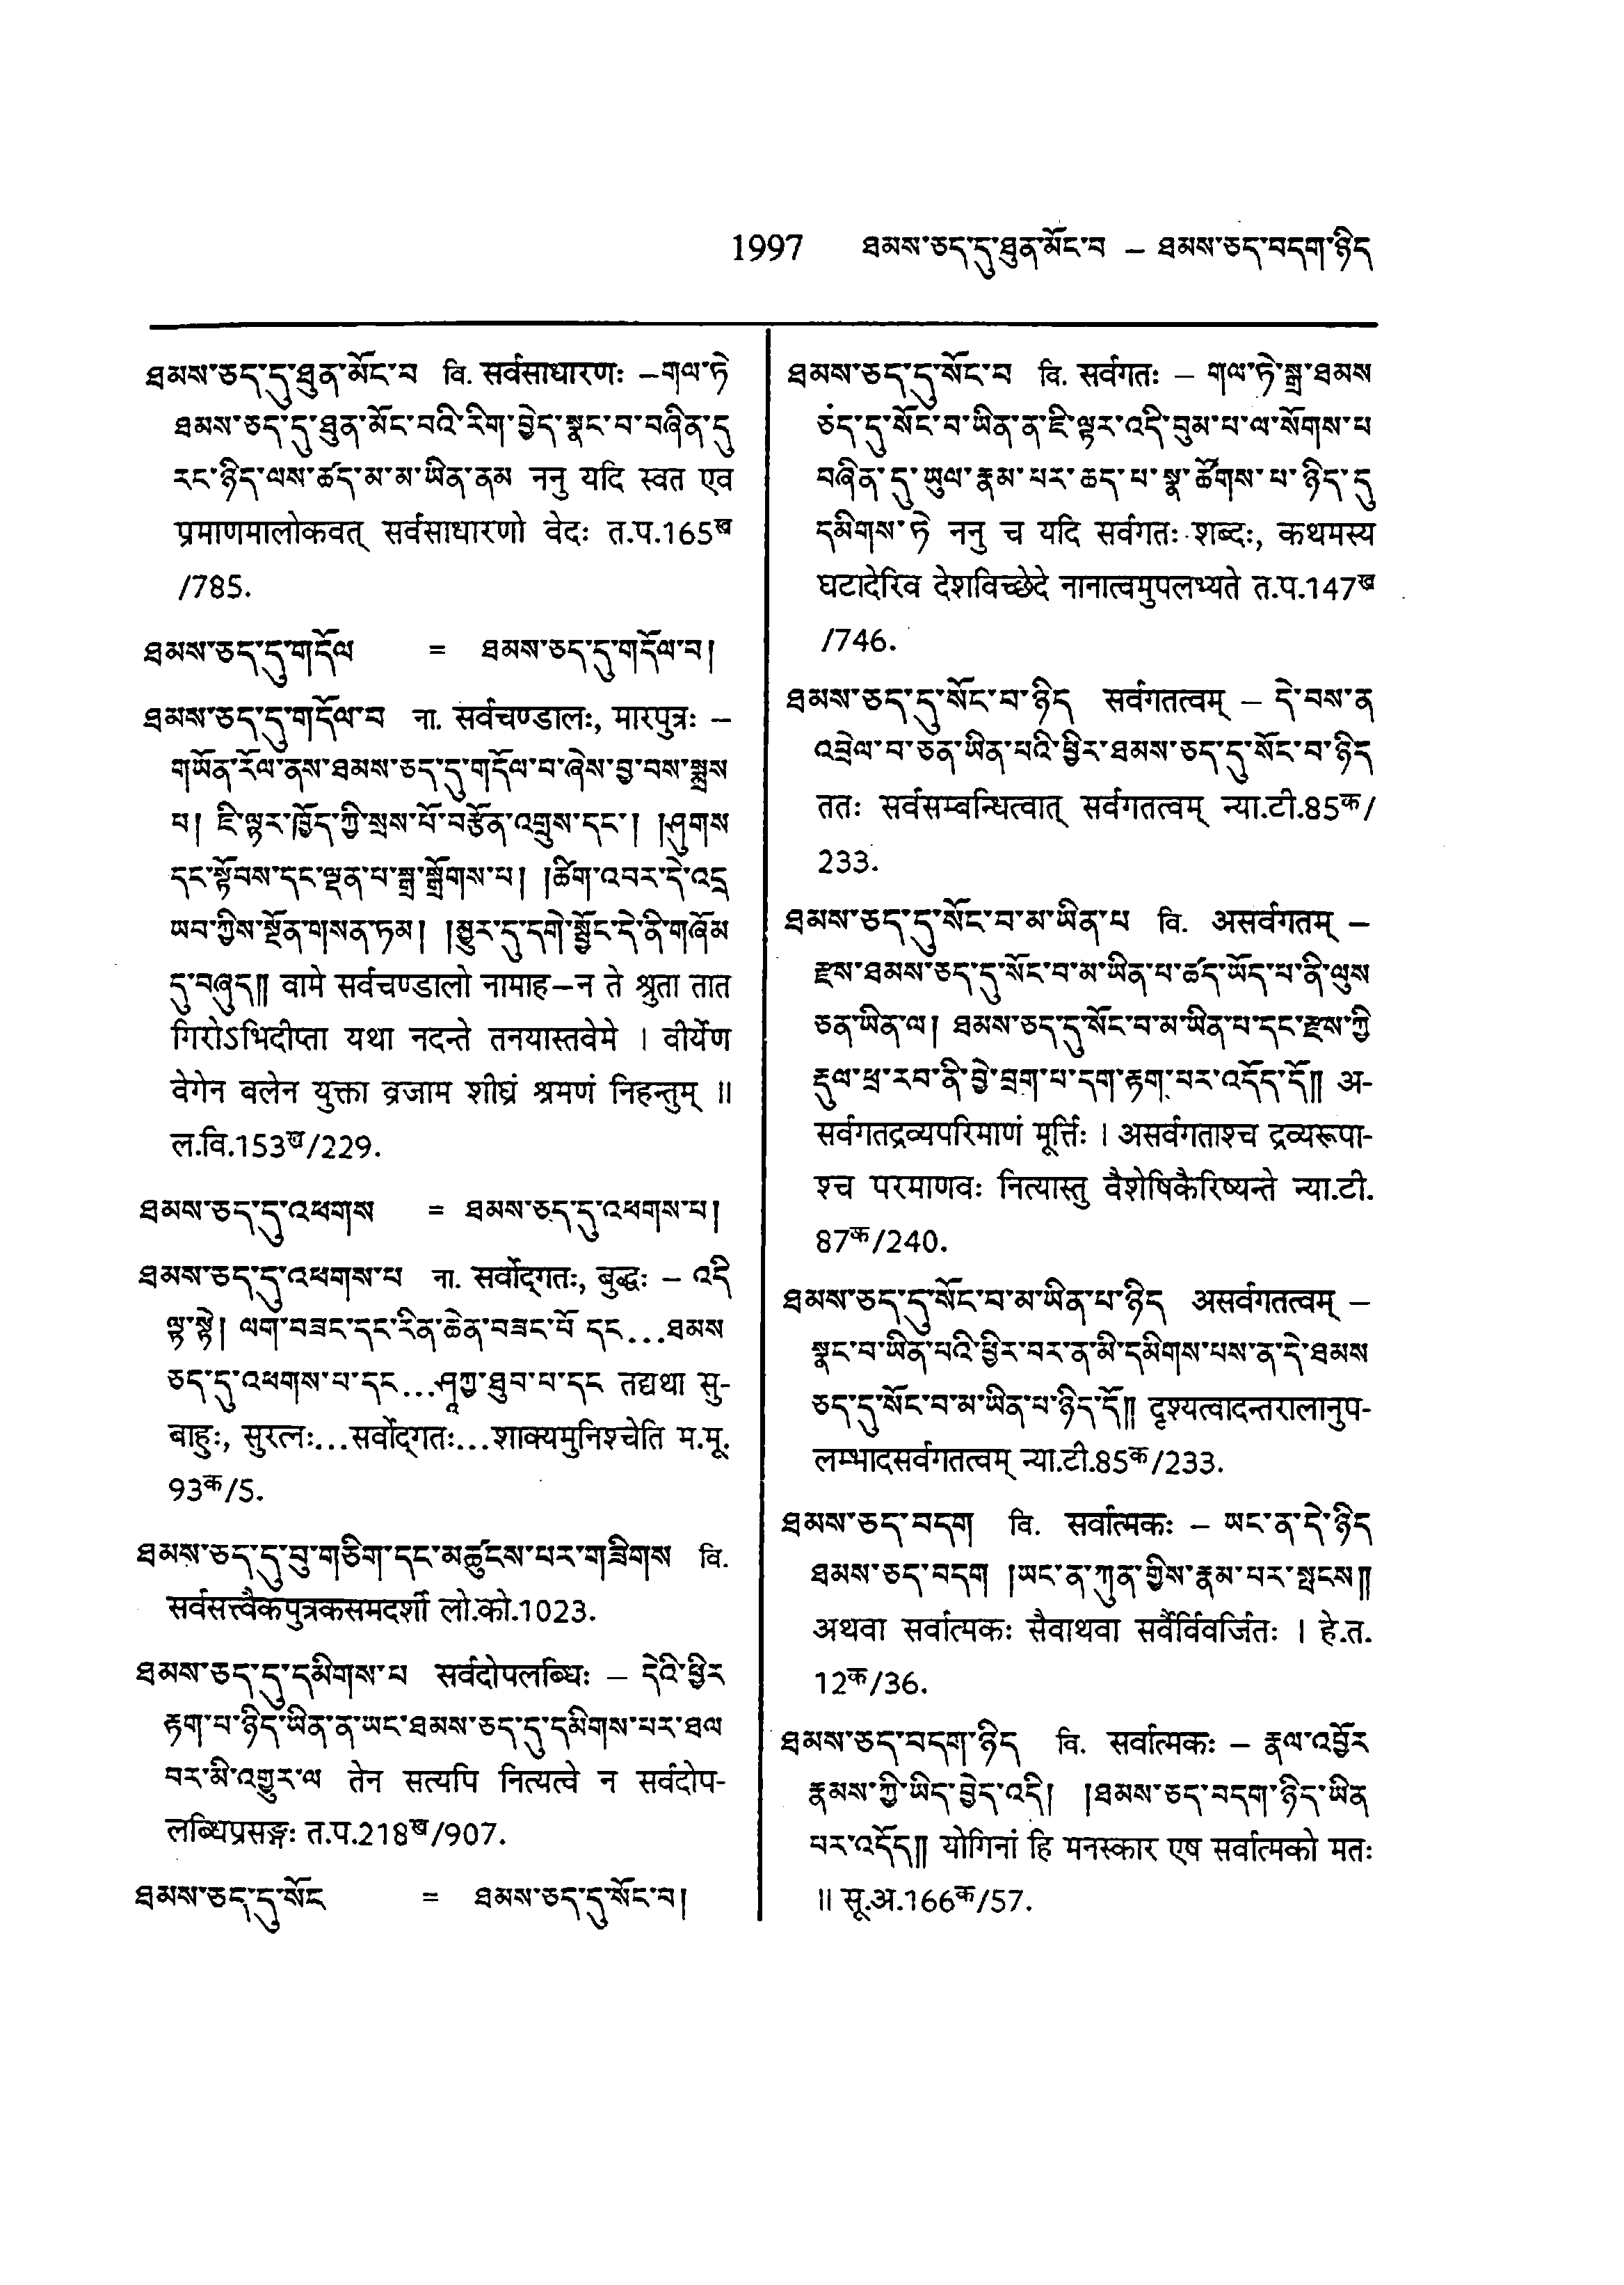 1997 ཐམས་ཅད་དུ་ཐུན་མོང་བ – ཐམས་ཅད་བདག་ཉིད
ཐམས་ཅད་དུ་ཐུན་མོང་བ वि. सर्वसाधारणः –གལ་ཏེ
ཐམས་ཅད་དུ་ཐུན་མོང་བའི་རིག་བྱེད་སྣང་བ་བཞིན་དུ
རང་ཉིད་ལས་ཚད་མ་མ་ཡིན་ནམ ननु यदि स्वत एव
प्रमाणमालोकवत् सर्वसाधारणो वेदः त.प.165ख
/785.
ཐམས་ཅད་དུ་གདོལ = ཐམས་ཅད་དུ་གདོལ་བ།
ཐམས་ཅད་དུ་གདོལ་བ ना. सर्वचण्डालः, मारपुत्रः –
གཡོན་རོལ་ནས་ཐམས་ཅད་དུ་གདོལ་བ་ཞེས་བྱ་བས་སྨྲས
པ། ཇི་ལྟར་ཁྱོད་ཀྱི་སྲས་པོ་བརྩོན་འགྲུས་དང་། །ཤུགས
དང་སྟོབས་དང་ལྡན་པ་སྒྲ་སྒྲོགས་པ། །ཚིག་འབར་དེ་འདྲ
ཡབ་ཀྱིས་སྔོན་གསན་ཏམ། །མྱུར་དུ་དགེ་སྦྱོང་དེ་ནི་གཞོམ
དུ་བཞུད༎ वामे सर्वचण्डालो नामाह–न ते श्रुता तात
गिरोऽभिदीप्ता यथा नदन्ते तनयास्तवेमे । वीर्येण
वेगेन बलेन युक्ता व्रजाम शीघ्रं श्रमणं निहन्तुम् ॥
ल.वि.153ख/229.
ཐམས་ཅད་དུ་འཕགས = ཐམས་ཅད་དུ་འཕགས་པ།
ཐམས་ཅད་དུ་འཕགས་པ ना. सर्वोद्गतः, बुद्धः – འདི
ལྟ་སྟེ། ལག་བཟང་དང་རིན་ཆེན་བཟང་པོ དང...ཐམས
ཅད་དུ་འཕགས་པ་དང...ཤཱཀྱ་ཐུབ་པ་དང तद्यथा सु-
बाहुः, सुरत्नः...सर्वोद्गतः...शाक्यमुनिश्चेति म.मू.
93क/5.
ཐམས་ཅད་དུ་བུ་གཅིག་དང་མཚུངས་པར་གཟིགས वि.
सर्वसत्त्वैकपुत्रकसमदर्शी लो.को.1023.
ཐམས་ཅད་དུ་དམིགས་པ सर्वदोपलब्धिः – དེའི་ཕྱིར
རྟག་པ་ཉིད་ཡིན་ན་ཡང་ཐམས་ཅད་དུ་དམིགས་པར་ཐལ
བར་མི་འགྱུར་ལ तेन सत्यपि नित्यत्वे न सर्वदोप-
लब्धिप्रसङ्गः त.प.218ख/907.
ཐམས་ཅད་དུ་སོང = ཐམས་ཅད་དུ་སོང་བ།
ཐམས་ཅད་དུ་སོང་བ वि. सर्वगतः – གལ་ཏེ་སྒྲ་ཐམས
ཅད་དུ་སོང་བ་ཡིན་ན་ཇི་ལྟར་འདི་བུམ་པ་ལ་སོགས་པ
བཞིན་དུ་ཡུལ་རྣམ་པར་ཆད་པ་སྣ་ཚོགས་པ་ཉིད་དུ
དམིགས་ཏེ ननु च यदि सर्वगतः शब्दः, कथमस्य
घटादेरिव देशविच्छेदे नानात्वमुपलभ्यते त.प.147ख
/746.
ཐམས་ཅད་དུ་སོང་བ་ཉིད सर्वगतत्वम् – དེ་བས་ན
འབྲེལ་བ་ཅན་ཡིན་པའི་ཕྱིར་ཐམས་ཅད་དུ་སོང་བ་ཉིད
ततः सर्वसम्बन्धित्वात् सर्वगतत्वम् न्या.टी.85क/
233.
ཐམས་ཅད་དུ་སོང་བ་མ་ཡིན་པ वि. असर्वगतम् –
རྫས་ཐམས་ཅད་དུ་སོང་བ་མ་ཡིན་པ་ཚད་ཡོད་པ་ནི་ལུས
ཅན་ཡིན་ལ། ཐམས་ཅད་དུ་སོང་བ་མ་ཡིན་པ་དང་རྫས་ཀྱི
རྡུལ་ཕྲ་རབ་ནི་བྱེ་བྲག་པ་དག་རྟག་པར་འདོད་དོ༎ अ-
सर्वगतद्रव्यपरिमाणं मूर्त्तिः । असर्वगताश्च द्रव्यरूपा-
श्च परमाणवः नित्यास्तु वैशेषिकैरिष्यन्ते न्या.टी.
87क/240.
ཐམས་ཅད་དུ་སོང་བ་མ་ཡིན་པ་ཉིད असर्वगतत्वम् –
སྣང་བ་ཡིན་པའི་ཕྱིར་བར་ན་མི་དམིགས་པས་ན་དེ་ཐམས
ཅད་དུ་སོང་བ་མ་ཡིན་པ་ཉིད་དོ༎ दृश्यत्वादन्तरालानुप-
लम्भादसर्वगतत्वम् न्या.टी.85क/233.
ཐམས་ཅད་བདག वि. सर्वात्मकः – ཡང་ན་དེ་ཉིད
ཐམས་ཅད་བདག །ཡང་ན་ཀུན་གྱིས་རྣམ་པར་སྤངས༎
अथवा सर्वात्मकः सैवाथवा सर्वैर्विवर्जितः । हे.त.
12क/36.
ཐམས་ཅད་བདག་ཉིད वि. सर्वात्मकः – རྣལ་འབྱོར
རྣམས་ཀྱི་ཡིད་བྱེད་འདི། །ཐམས་ཅད་བདག་ཉིད་ཡིན
པར་འདོད༎ योगिनां हि मनस्कार एष सर्वात्मको मतः
॥ सू.अ.166क/57.